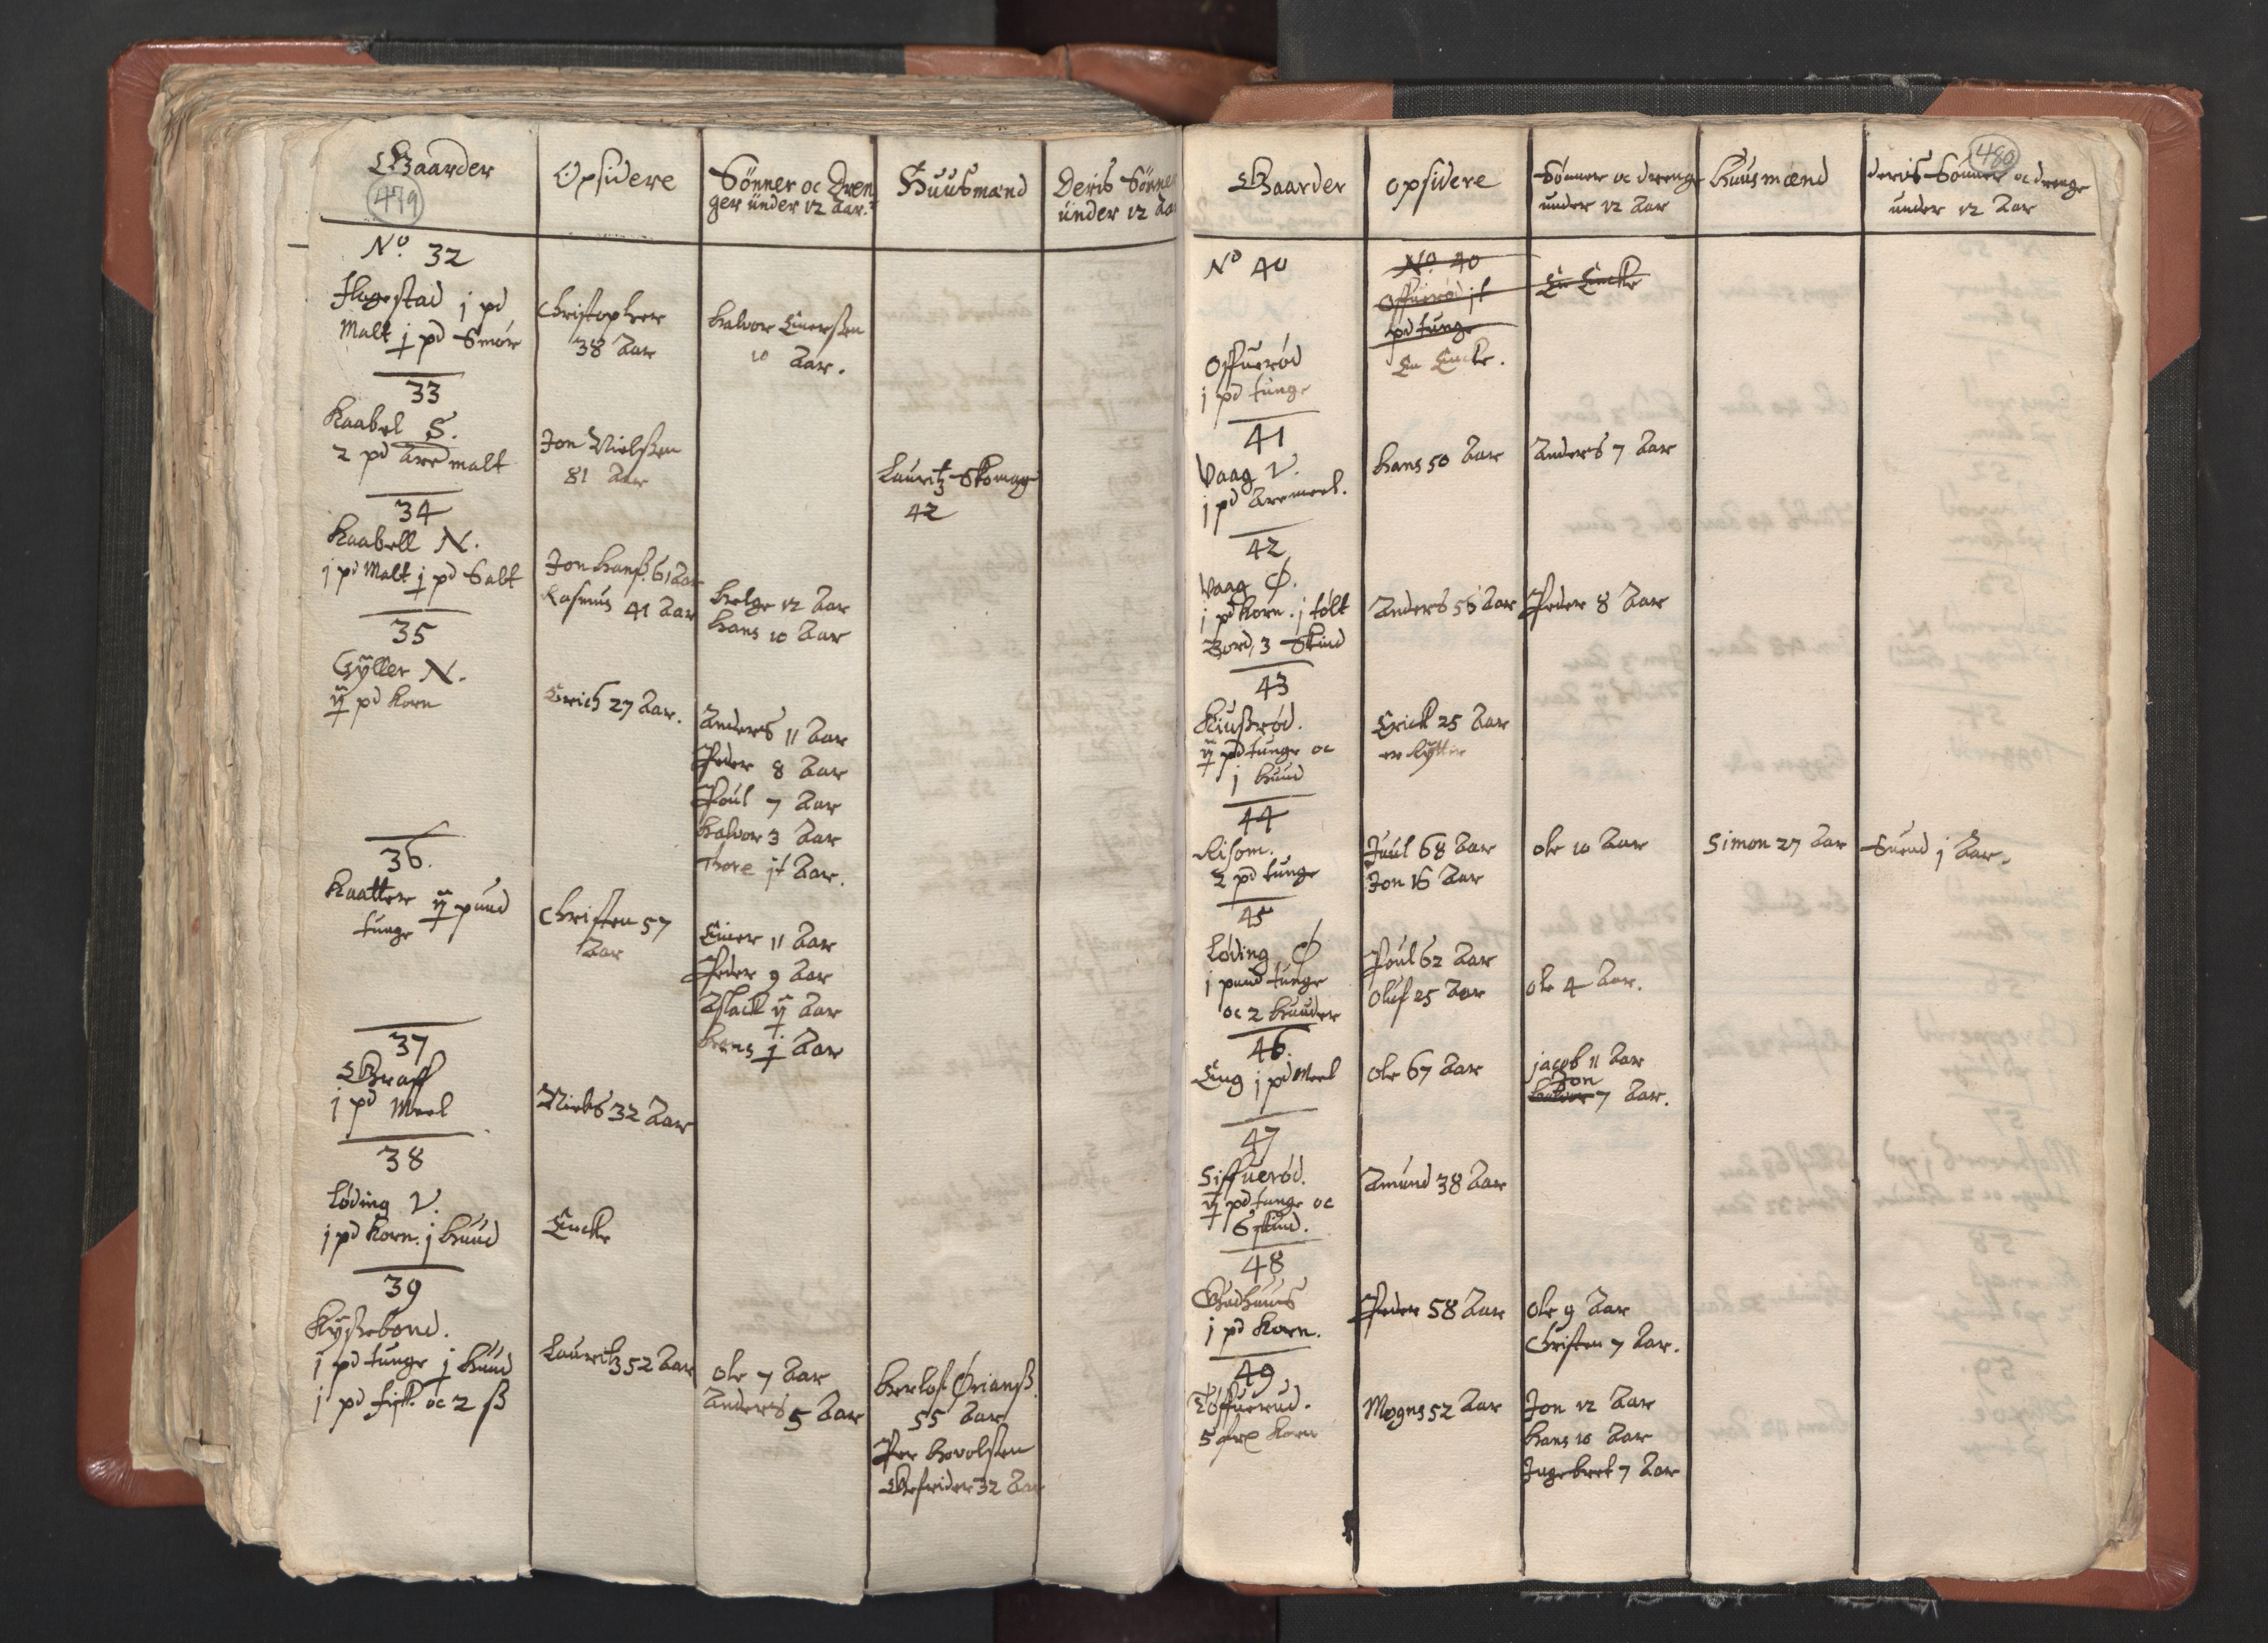 Gaarder
479
Opsidere
Sønner oc Dren
ger under 12 Aar.
Huusmænd
Deris Sønner
under 12 Aar
No. 32
Hagestad j pd
Malt j pd Smør
Christopher
38 Aar
Halvor Einersen
10 Aar.
33
Kaabel S.
2 pd Are malt
Jon Nielsen
81 Aar
Lauritz Skomag
42
34
Kaabell N.
j pd Malt j pd Salt
Jon Hanss. 61 Aar
Rasmus 41 Aar
Helge 12 Aar
Hans 10 Aar
35
Gÿller N.
ij pd Korn
Erich 27 Aar.
Anders 11 Aar
Peder 8 Aar
Poul 7 Aar
Halvor 3 Aar
Thore jt Aar.
36.
Kaatter ij pund
tunge
Christen 57
Aar
Einer 11 Aar
Peder 9 Aar
Aslack ij Aar
Hans j Aar
37
Graff
j pd Meel
Niels 32 Aar
38
Løding V.
j pd Korn. j Huud
Encke
39
Kysebond.
j pd tunge j Huud
j pd fisk oc 2 ß
Lauritz 52 Aar
Ole 7 Aar
Anders 5 Aar
Herlof Ørianß.
55 Aar
Per Hovolsen
Gefreider 32 Aar
Gaarder
opsidere
Sønner oc drenge
under 12 Aar
Huusmænd
deris Sønner oc drenge
under 12 Aar
480
No 40
No. 40
Offuerød jt
pd tunge
En Encke
Offuerød
j pd tunge
En Encke.
41
Vaag V.
j pd Aremeel.
Hans 50 Aar
Anders 7 Aar
42
Vaag Ø.
j pd Korn. j tølt
Bord, 3 Skind
Anders 56 Aar
Peder 8 Aar
43
Kiußrød.
ij pd tunge oc
j Huud
Erick 25 Aar
er Rytter
44
Risom.
2 pd tunge
Juul 68 Aar
Jon 16 Aar
Ole 10 Aar
Simon 27 Aar
Suend j Aar.
45
Løding Ø
j pund tunge
oc 2 Huuder
Poul 62 Aar
Oluf 25 Aar
Ole 4 Aar.
46.
Eng j pd Meel
Ole 67 Aar
Jacob 11 Aar
Jon
Halvor 7 Aar.
47
Siffuerød.
ij pd tunge oc
6 skind.
Amund 38 Aar
48
Gudhuus
j pd Korn.
Peder 58 Aar
Ole 9 Aar
Christen 7 Aar.
49
Töffuerud.
5 Korn
Mogns 52 Aar
Jon 12 Aar
Hans 10 Aar
Ingebret 7 Aar